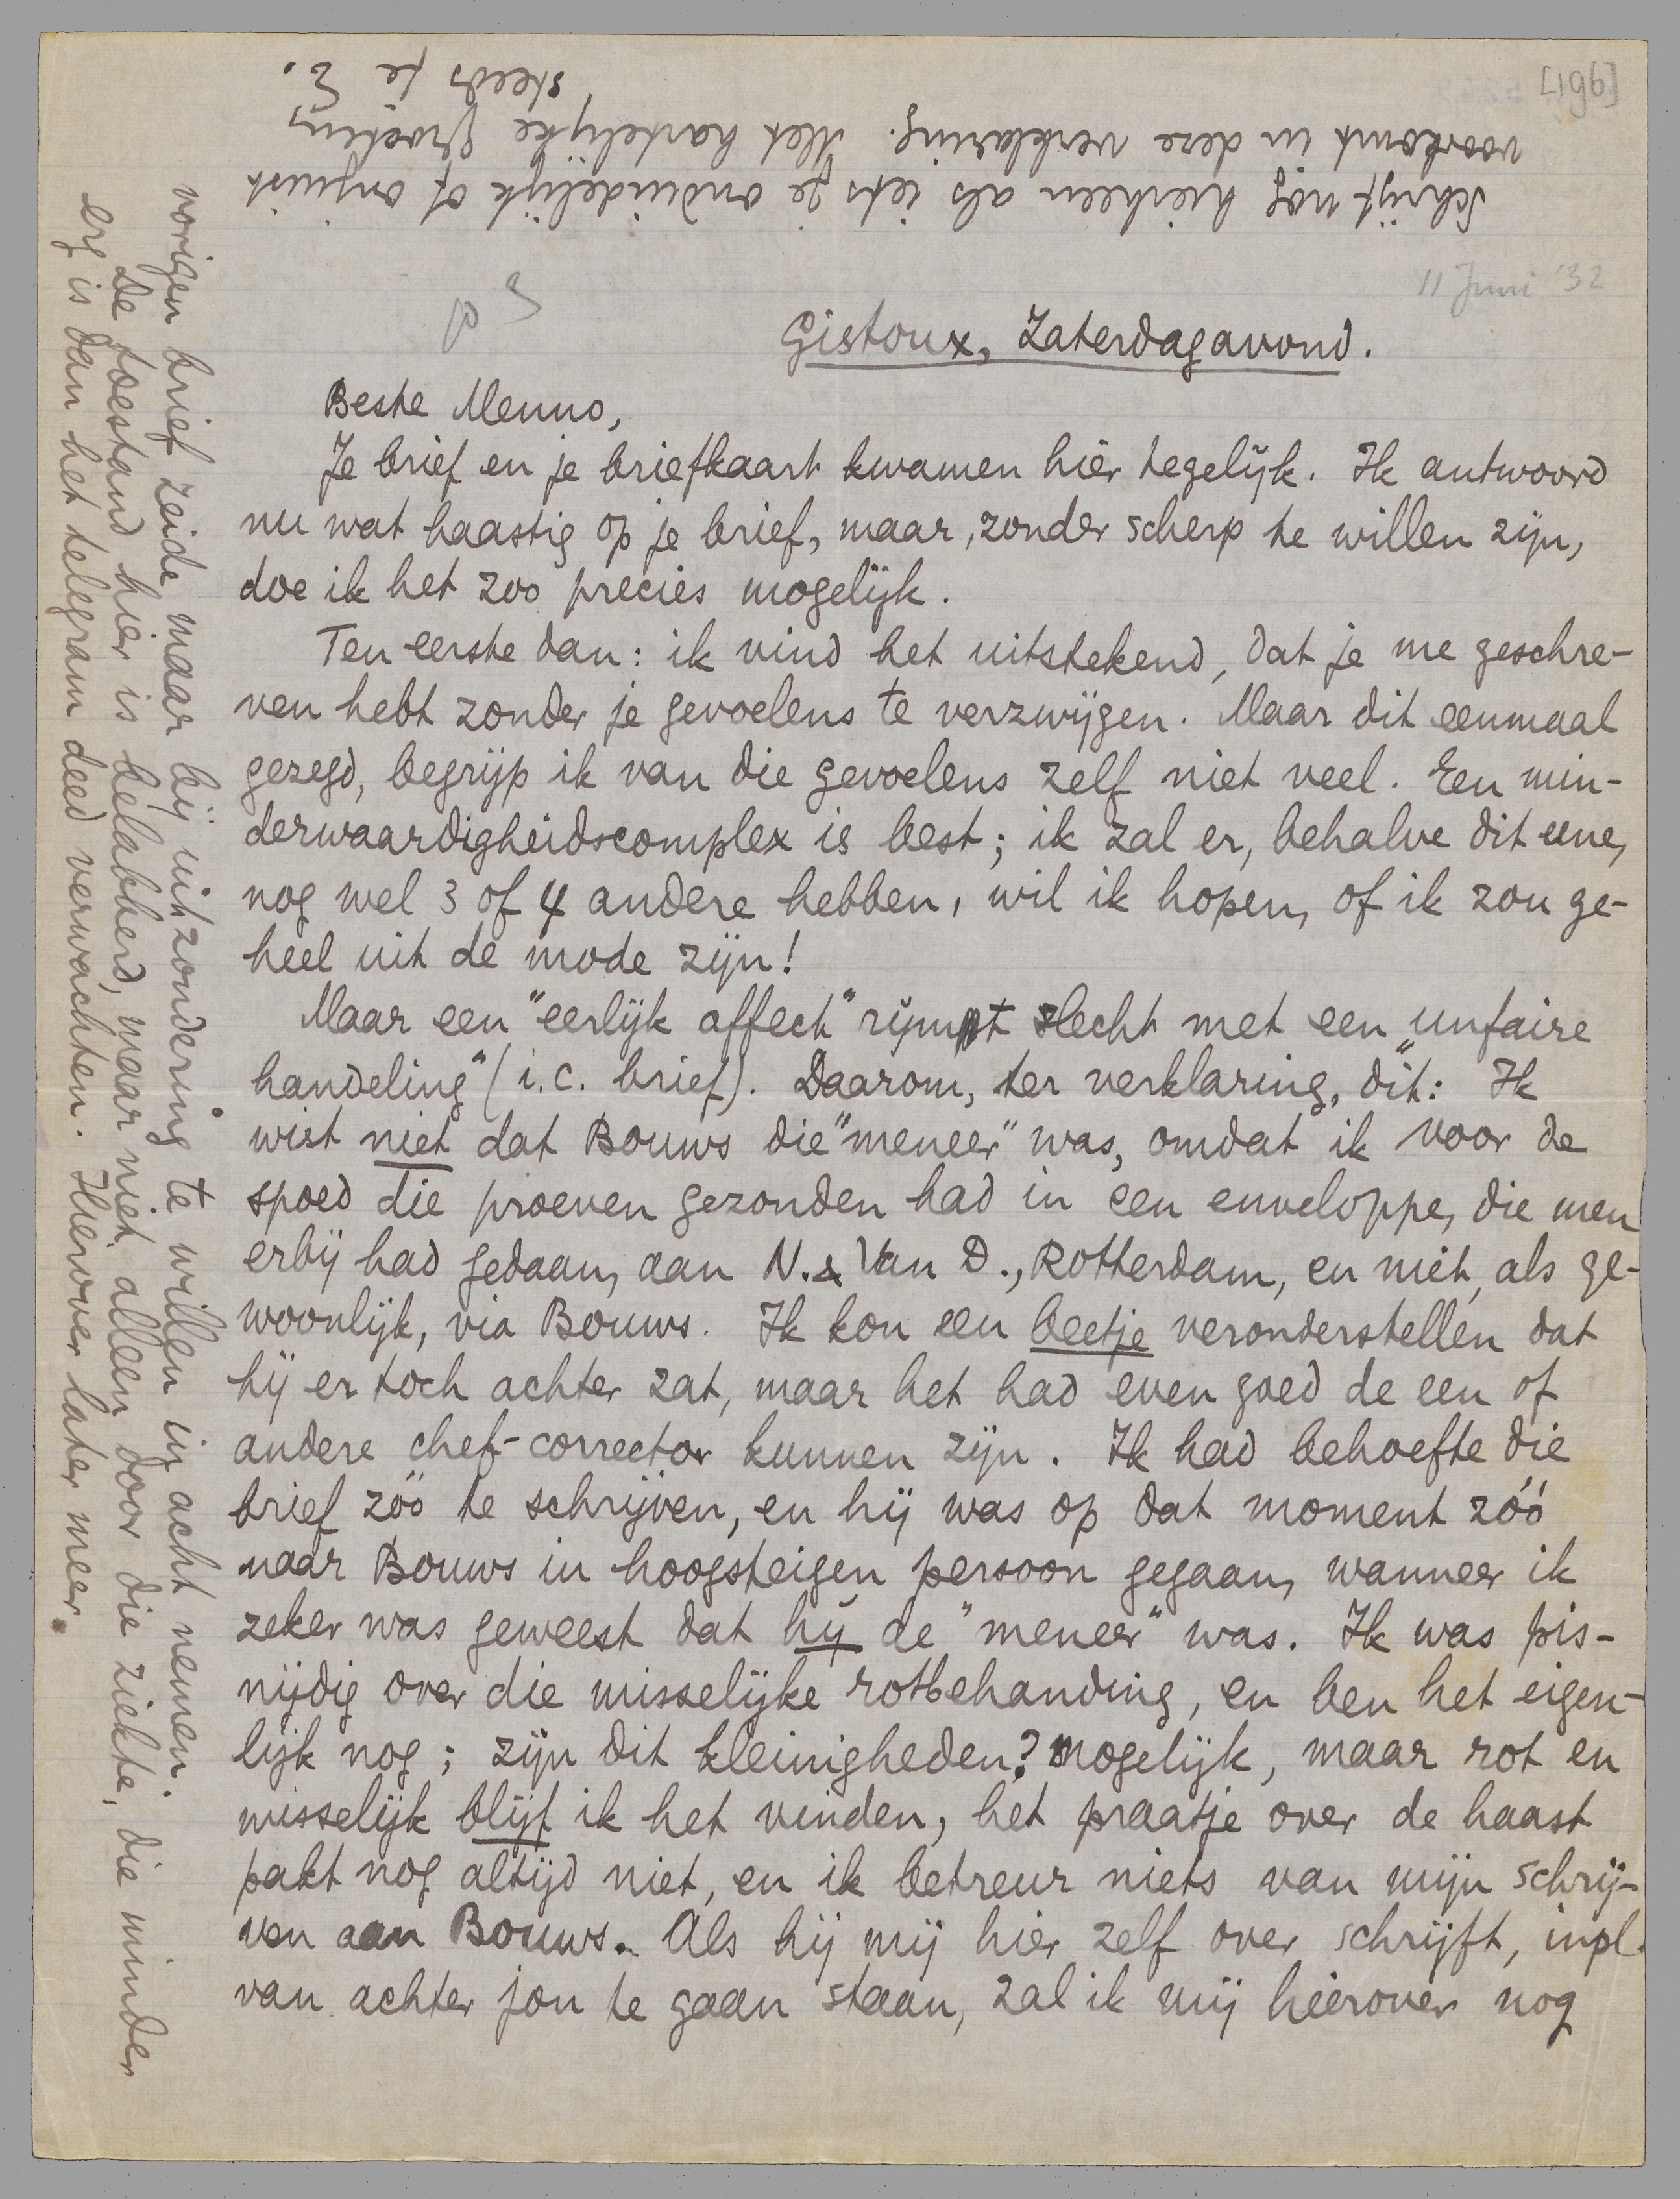 [196]
11 Juni '32
p 3
Gistoux, Zaterdagavond.
Beste Menno,
Je brief en je briefkaart kwamen hier tegelijk. Ik antwoord
nu wat haastig op je brief, maar, zonder scherp te willen zijn,
doe ik het zoo precies mogelijk.
Ten eerste dan: ik vind het uitstekend, dat je me geschre-
ven hebt zonder je gevoelens te verzwijgen. Maar dit eenmaal
gezegd, begrijp ik van die gevoelens zelf niet veel. Een min-
derwaardigheidscomplex is best; ik zal er, behalve dit eene,
nog wel 3 of 4 andere hebben, wil ik hopen, of ik zou ge-
heel uit de mode zijn!
Maar een "eerlijk affect" rijmt slecht met een "unfaire
handeling" (i.c. brief). Daarom, ter verklaring, dit: Ik
wist niet dat Bouws die "meneer" was, omdat ik voor de
spoed die proeven gezonden had in een enveloppe, die men
erbij had gedaan, aan N. & Van D., Rotterdam, en niet, als ge-
woonlijk, via Bouws. Ik kon een beetje veronderstellen dat
hij er toch achter zat, maar het had even goed de een of
andere chef-corrector kunnen zijn. Ik had behoefte die
brief zóó te schrijven, en hij was op dat moment zóó
naar Bouws in hoogsteigen persoon gegaan, wanneer ik
zeker was geweest dat hij de "meneer" was. Ik was pis-
nijdig over die misselijke rotbehandling, en ben het eigen-
lijk nog; zijn dit kleinigheden? Mogelijk, maar rot en
misselijk blijf ik het vinden, het praatje over de haast
pakt nog altijd niet, en ik betreur niets van mijn schrij-
ven aan Bouws. Als hij mij hier zelf over schrijft, inpl.
van achter jou te gaan staan, zal ik mij hierover nog
vorigen brief zeide, maar bij uitzondering te willen in acht nemen.
De toestand hier is belabberd, maar niet alleen door die ziekte, die minder
erg is dan het telegram deed verwachten. Hierover later meer.
Schrijf nog hierheen als iets je onduidelijk of onjuist
voorkomt in deze verklaring. Met hartelijke groeten,
steeds je E.